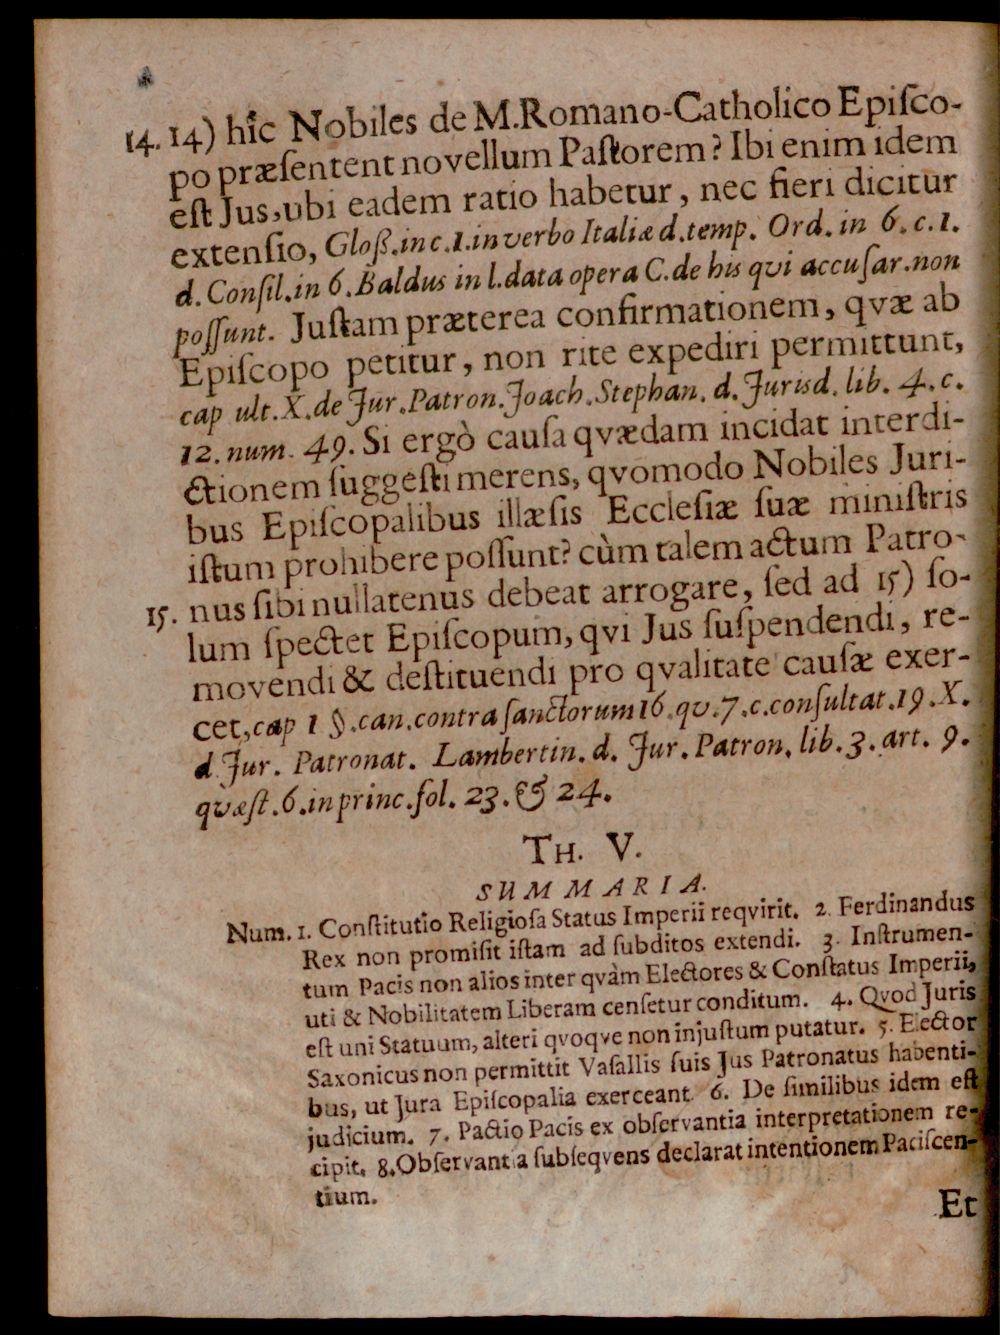 14. 14) hîc Nobiles de M. Romano-Catholico Episco-
po præsentent novellum Pastorem? Ibi enim idem
est Jus, ubi eadem ratio habetur, nec fieri dicitur
extensio, Gloß. in c. 1. in verbo Italiæ d. temp. Ord. in 6. c. 1.
d. Consil. in 6. Baldus in l. data opera C. de his qvi accusar. non
possunt. Justam præterea confirmationem, qvæ ab
Episcopo petitur, non rite expediri permittunt,
cap ult. X. de Jur. Patron. Joach. Stephan. d. Jurisd. lib. 4. c.
12. num. 49. Si ergò causa qvædam incidat interdi-
ctionem suggesti merens, qvomodo Nobiles Juri-
bus Episcopalibus illæsis Ecclesiæ suæ ministris
istum prohibere possunt? cùm talem actum Patro-
15. nus sibi nullatenus debeat arrogare, sed ad 15) so-
lum spectet Episcopum, qvi Jus suspendendi, re-
movendi & destituendi pro qvalitate causæ exer-
cet, cap 1 §. can. contra sanctorum 16. qv. 7. c. consultat. 19. X.
d Jur. Patronat. Lambertin. d. Jur. Patron. lib. 3. art. 9.
qvæst. 6. in princ. fol. 23. & 24.
TH. V.
SUMMARIA.
Num. 1. Constitutio Religiosa Status Imperii reqvirit. 2. Ferdinandus
Rex non promisit istam ad subditos extendi. 3. Instrumen-
tum Pacis non alios inter qvàm Electores & Constatus Imperii,
uti & Nobilitatem Liberam censetur conditum. 4. Qvod Juris
est uni Statuum, alteri qvoqve non injustum putatur. 5. Elector
Saxonicus non permittit Vasallis suis Jus Patronatus habenti-
bus, ut Jura Episcopalia exerceant. 6. De similibus idem est
judicium. 7. Pactio Pacis ex observantia interpretationem re-
cipit. 8. Observantia subseqvens declarat intentionem Paciscen-
tium.
Et